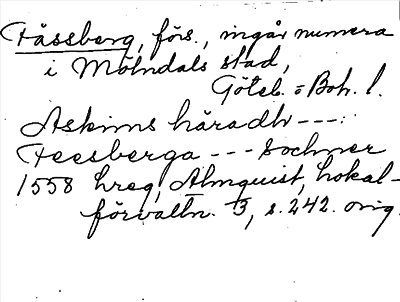 Fässberg, förs., ingår numera
i Mölndals stad,
Göteb. o Boh. l.
Askims häradh ---:
Feesberga --- Sochner
1558 hreg, Almquist, Lokal-
förvaltn. 3, s. 242. orig.